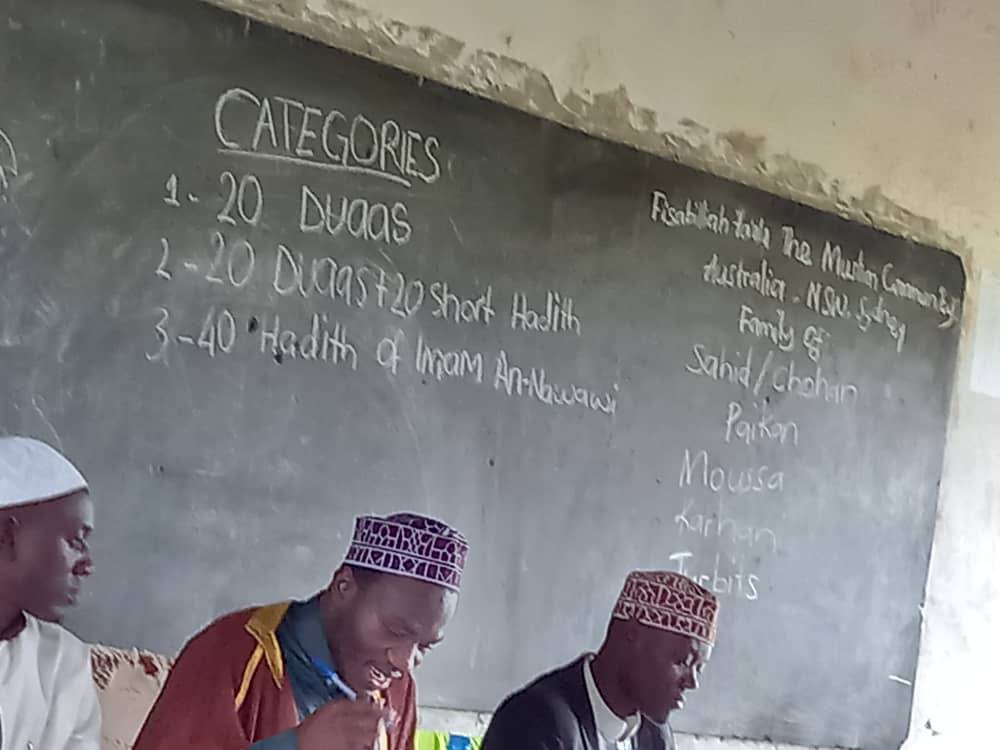 CATEGORIES
1- 20 Duaas
2-20 Duaas+20 short Hadith
3-40 Hadith of Imam An-Nawawi
The Muslim Community
Australia - NSW, Sydney
Family of
Sahid/Chohan
Paikan
Moussa